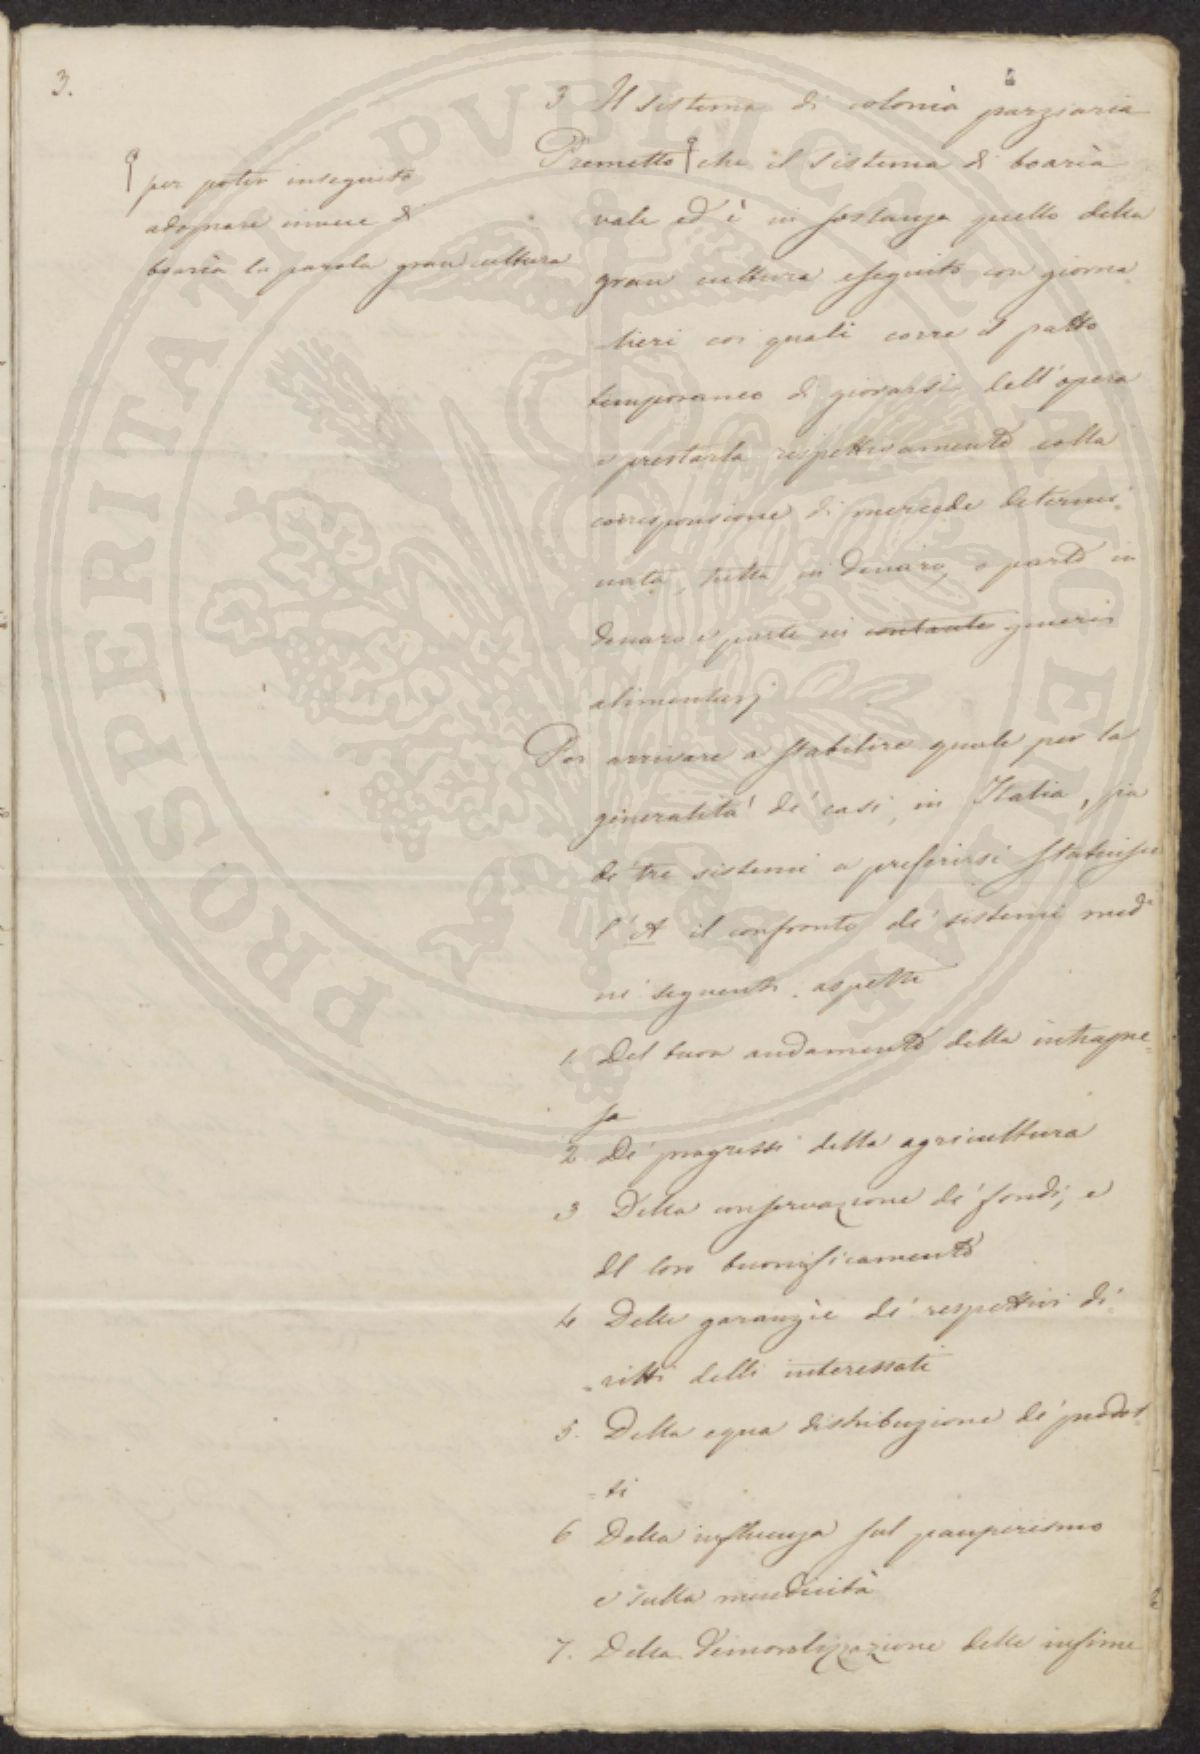 3.
3 Il sistema di colonìa parziaria
Premetto che il sistema di boarìa
per poter inseguito
adoprare invece di
boarìa la parola gran cultura
vale ed è in sostanza quello della
gran cultura eseguito con giorna
lieri coi quali corre il patto
temporaneo di giovarsi dell'opera
e prestarla respettivamente colla
corresponsione di mercede determi-
nata, tutta in denaro, o parte in
denaro e parte in contante generi
alimentarj
Per arrivare a stabilire quale per la
generalità de' casi, in Italia, sia
de' tre sistemi a preferirsi statuisce
l'A il confronto de' sistemi med.i
ne' seguenti aspetti
1. Del buon andamento della intrapre=
sa
2 De' progressi della agricultura
3 Della conservazione de' fondi, e
del loro buonificamento
4 Delle garanzìe de' respettivi di-
-ritti delli interessati
5. Della equa distribuzione de' prodot
-ti
6 Della influenza sul pauperismo
e sulla mendicità
7. Della demoralizzazione delle infime
PROSPERITATI PVBLICAE AVGENDAE